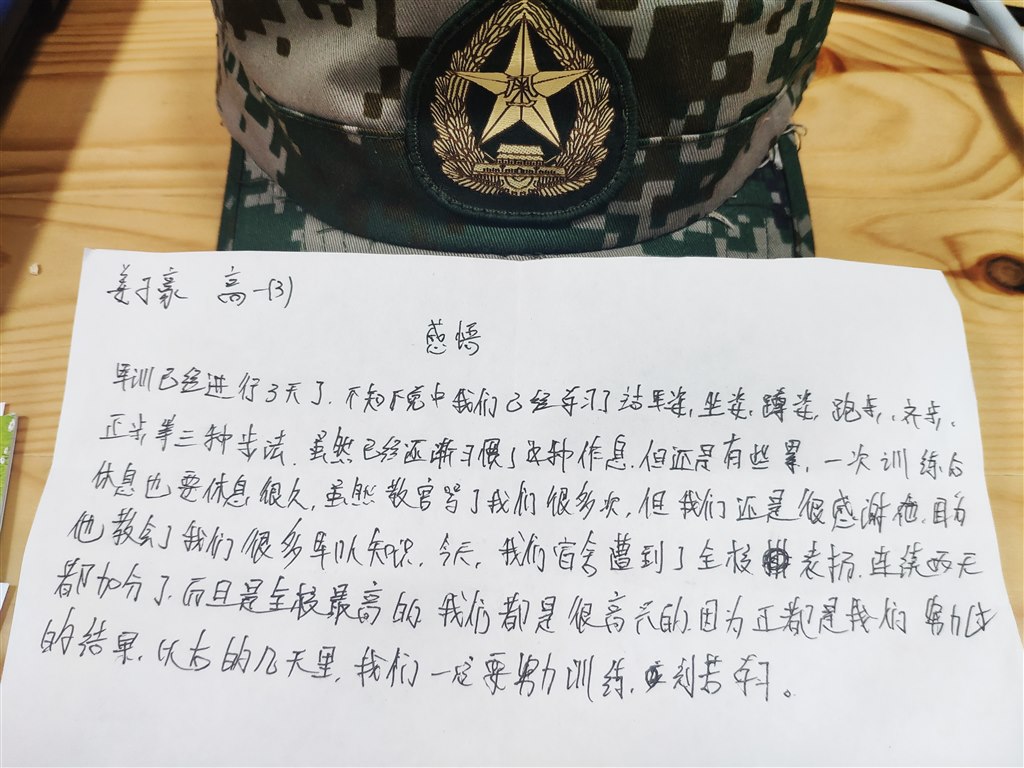 姜子豪 高一(3)
感悟
军训已经进行了3天了.不知不觉中我们已经学习了站军姿,坐姿,蹲姿,跑步,齐步,
正步等三种步法.虽然已经逐渐习惯了这种作息.但还是有些累,一次训练的
休息也要休息很久,虽然教官骂了我们很多次,但我们还是很感谢他.因为
他教会了我们很多军队知识.今天,我们宿舍遭到了全校表扬.连续两天
都加分了.而且是全校最高的.我们都是很高兴的.因为正都是我们努力
的结果.以后的几天里,我们一定要努力训练,刻苦学习。